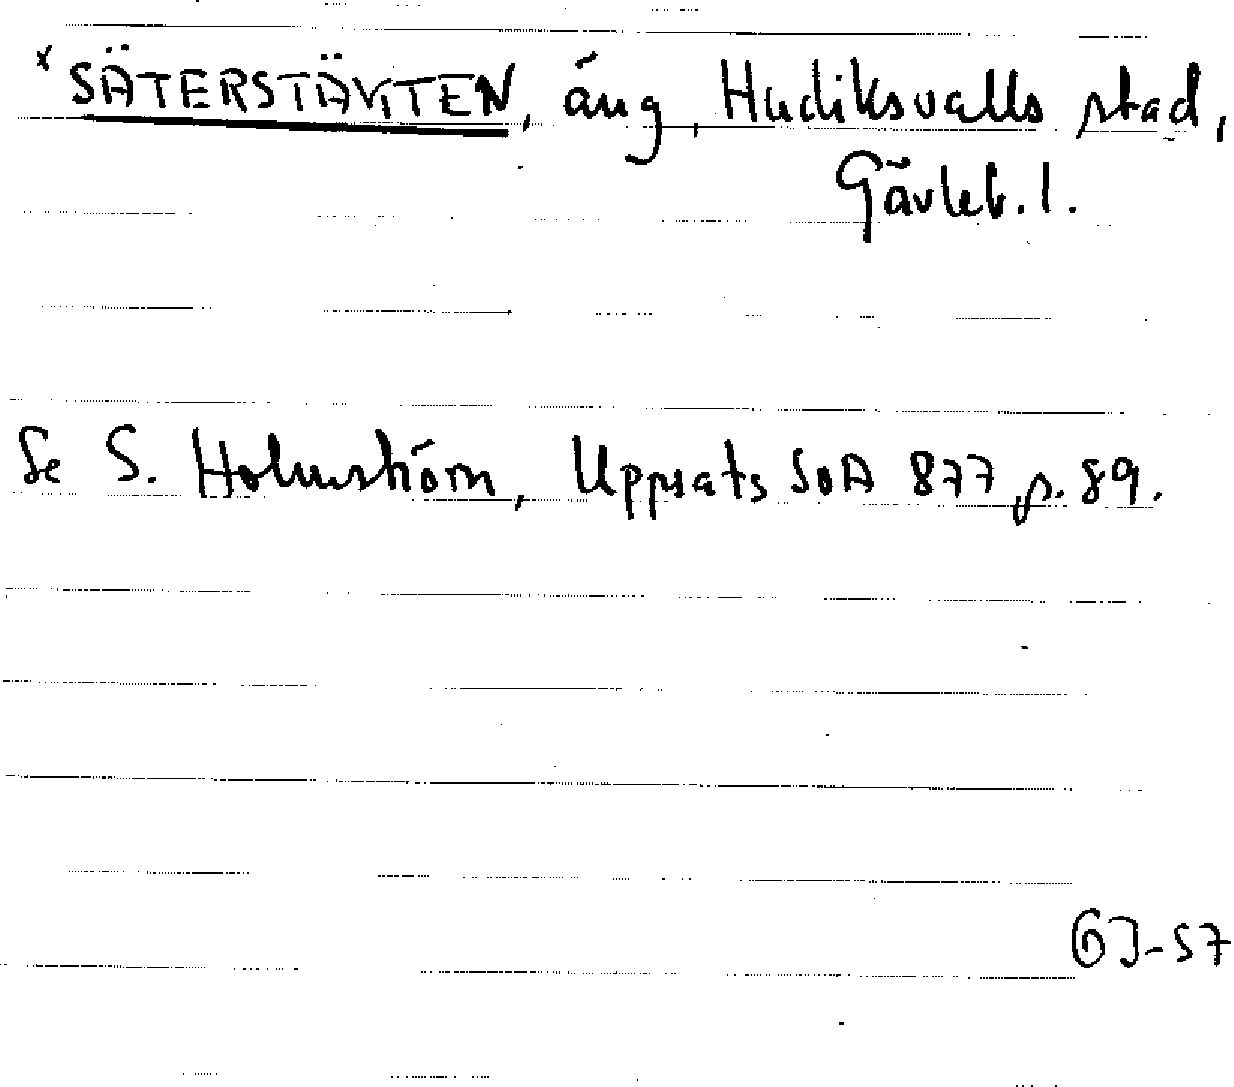 x SÄTERSTÄKTEN, äng, Hudiksvalls stad,
Gävleb. l.
Se S. Holmström, Uppsats SOA 877 p. 89.
GJ-57